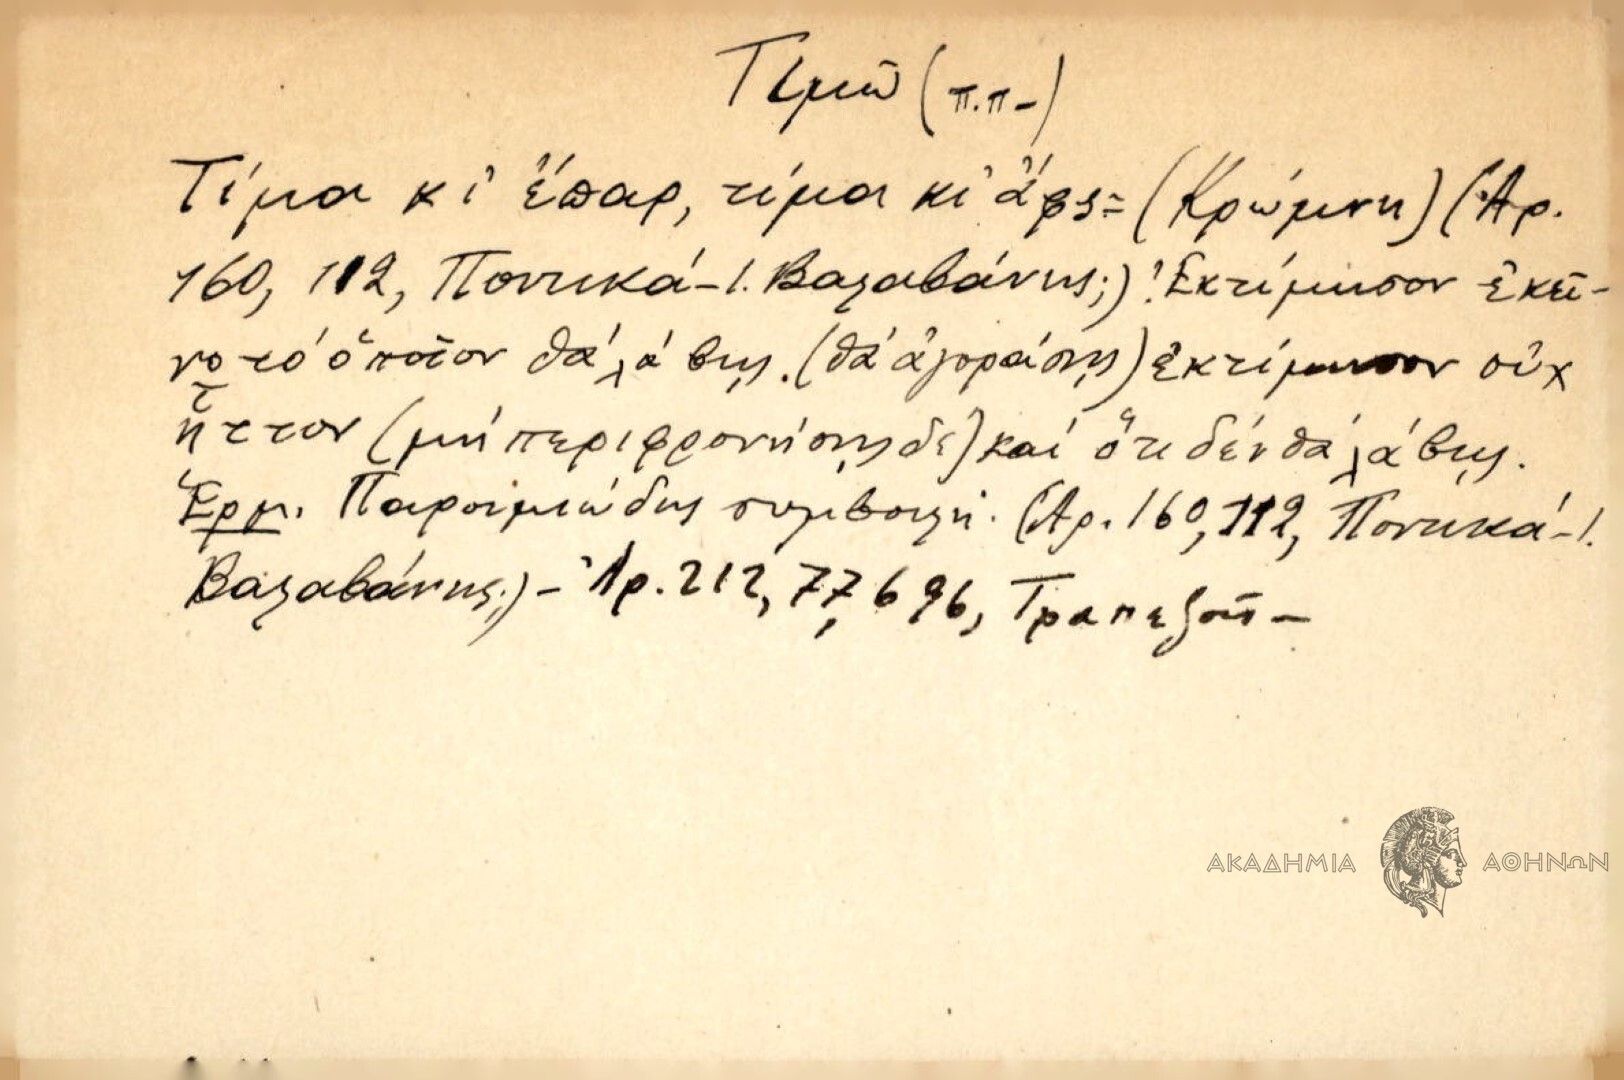 Τιμῶ (π.π-)
Τίμα κ' ἔπαρ, τίμα κι ἄφς = (Κρώμνη) (Ἀρ.
160, 112, Ποντικά - Ι. Βαλαβάνης;) Ἐκτίμησον ἐκεῖ-
νο τό ὁποῖον θά λάβῃς. (θά ἀγοράσῃς) ἐκτίμησον οὐχ
ἧττον (μή περιφρονήσῃς δέ) καί ὅτι δέν θά λάβῃς.
Ἑρμ. Παροιμιώδης συμβουλή. (Ἀρ. 160, 112, Ποντικά - Ι.
Βαλαβάνης;) - Ἀρ. 212, 77, 696, Τραπεζοῦς -
ΑΚΑΔΗΜΙΑ ΑΘΗΝΩΝ